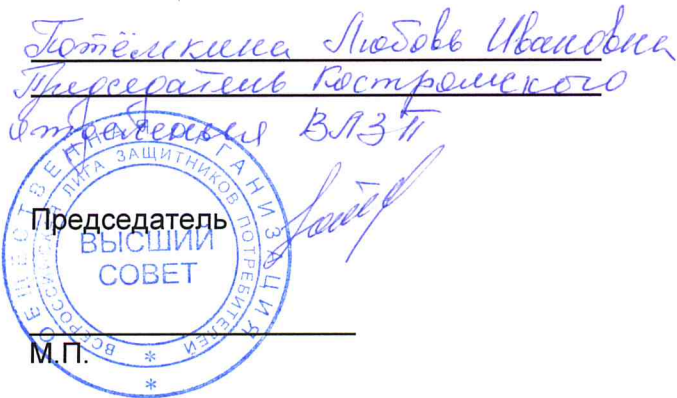 Потёмкина Любовь Ивановна
Председатель Костромского
отделения ВЛЗП
ОБЩЕСТВЕННАЯ ОРГАНИЗАЦИЯ
ВСЕРОССИЙСКАЯ ЛИГА ЗАЩИТНИКОВ ПОТРЕБИТЕЛЕЙ
Председатель
ВЫСШИЙ
СОВЕТ
М.П.